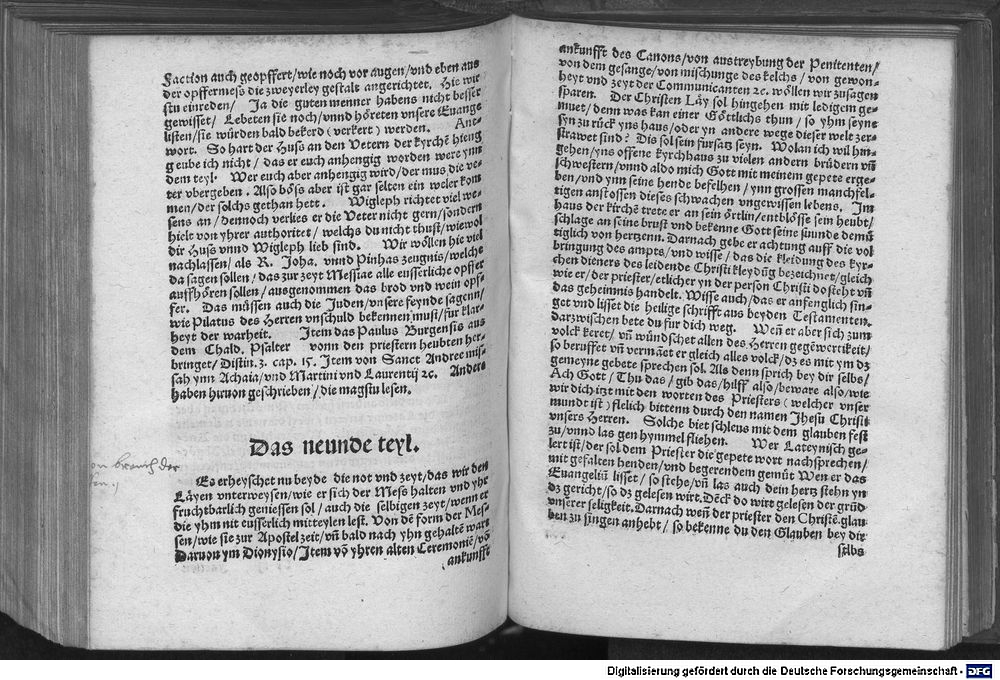 faction auch geopffert/wie noch vor augen/vnd eben aus
der opffermess die zweyerley gestalt angerichtet. Hie wir
stu einreden/ Ja die guten menner habens nicht besser
gewisset/ Lebeten sie noch/vnnd höreten vnsere Euange
listen/sie würden bald bekerd (verkert) werden. Ant-
wort. So hart der Huss an den Vetern der kyrchē hieng
geube ich nicht/das er euch anhengig worden were ynn
dem teyl. Wer euch aber anhengig wird/der mus die ve-
ter vbergeben. Also böss aber ist gar selten ein weler kom
men/der solchs gethan hett. Wigleph richtet viel we-
sens an/dennoch verlies er die Veter nicht gern/sondern
hielt von yhrer authoritet/welchs du nicht thust/wiewol
dir Huss vnnd Wigleph lieb sind. Wir wöllen hie viel
nachlassen/als R. Joha. vnnd Pinhas zeugnis/welche
da sagen sollen/das zur zeyt Messiae alle eusserliche opffer
auffhören sollen/ausgenommen das brod vnd wein opf-
fer. Das müssen auch die Juden/vnsere feynde sagenn/
wie Pilatus des Herren vnschuld bekennen must/fur klar-
heyt der warheit. Item das Paulus Burgensis aus
dem Chald. Psalter vonn den priestern heubten her-
bringet/Distin. 3. cap. 15. Item von Sanct Andree mis-
sah ynn Achaia/vnd Martini vnd Laurentij ꝛc. Anders
haben hiruon geschrieben/die magstu lesen.
Das neunde teyl.
brauch der
Es erheyschet nu beyde die not vnd zeyt/das wir den
Läyen vnterweysen/wie er sich der Mess halten vnd yhr
fruchtbarlich geniessen sol/auch die selbigen zeyt/wenn er
die yhm nit eusserlich mitteylen lest. Von dē form der Mes-
sen/wie sie zur Apostel zeit/vñ bald nach yhn gehaltē ward
Daruon ym Dionysio/Item vō yhren alten Ceremoniē/vō
ankunfft
ankunfft des Canons/von austreybung der Penitenten/
von dem gesange/von mischunge des kelchs/von gewon-
heyt vnd zeyt der Communicanten ꝛc. wöllen wir zusagen
sparen. Der Christen Läy sol hingehen mit ledigem ge-
muet/denn was kan einer Göttlichs thun/so yhm seyne
syn zu rück yns haus/oder yn andere wege dieser welt zer-
strawet sind? Dis sol sein fursatz seyn. Wolan ich wil hin-
gehen/yns offene kyrchhaus zu vielen andern brüdern vñ
schwestern/vnnd aldo mich Gott mit meinem gepete erge-
ben/vnd ynn seine hende befelhen/ynn grossen manchfel-
tigen anstossen dieses schwachen vngewissen lebens. Im
haus der kirchē trete er an sein örtlin/entblösse sein heubt/
schlage an seine brust vnd bekenne Gott seine suunde demü
tiglich von hertzenn. Darnach gebe er achtung auff die vol
bringung des ampts/vnd wisse/das die kleidung des kyr-
chen dieners des leidende Christi kleydūg bezeichnet/gleich
wie er/der priester/etlicher yn der person Christi do steht vñ
das geheimnis handelt. Wisse auch/das er anfenglich sin-
get vnd lisset die heilige schrifft aus beyden Testamenten.
darzwischen bete du fur dich weg. Weñ er aber sich zum
volck keret/vñ wündschet allen des Herren gegēwertikeit/
so beruffet vñ vermaet er gleich alles volck/dz es mit ym dz
gemeyne gebete sprechen sol. Als denn sprich bey dir selbs/
Ach Gott/Thu das/gib das/hilff also/beware also/wie
wir dich itzt mit den worten des Priesters (welcher vnser
mundt ist) flelich bittenn durch den namen Jhesu Christi
vnsers Herren. Solche biet schleus mit dem glauben fest
zu/vnnd las gen hymmel fliehen. Wer Lateynisch ge-
lert ist/der sol dem Priester die gepete wort nachsprechen/
mit gefalten henden/vnd begerendem gemüt Wen er das
Euangeliū lisset/so stehe/vñ las auch dein hertz stehn yn
dz gericht/so dz gelesen wirt. Dēck do wirt gelesen der grūd
vnserer seligkeit. Darnach weñ der priester den Christē glau
ben zu singen anhebt/so bekenne du den Glauben bey dir
selbs
Digitalisierung gefördert durch die Deutsche Forschungsgemeinschaft - DFG